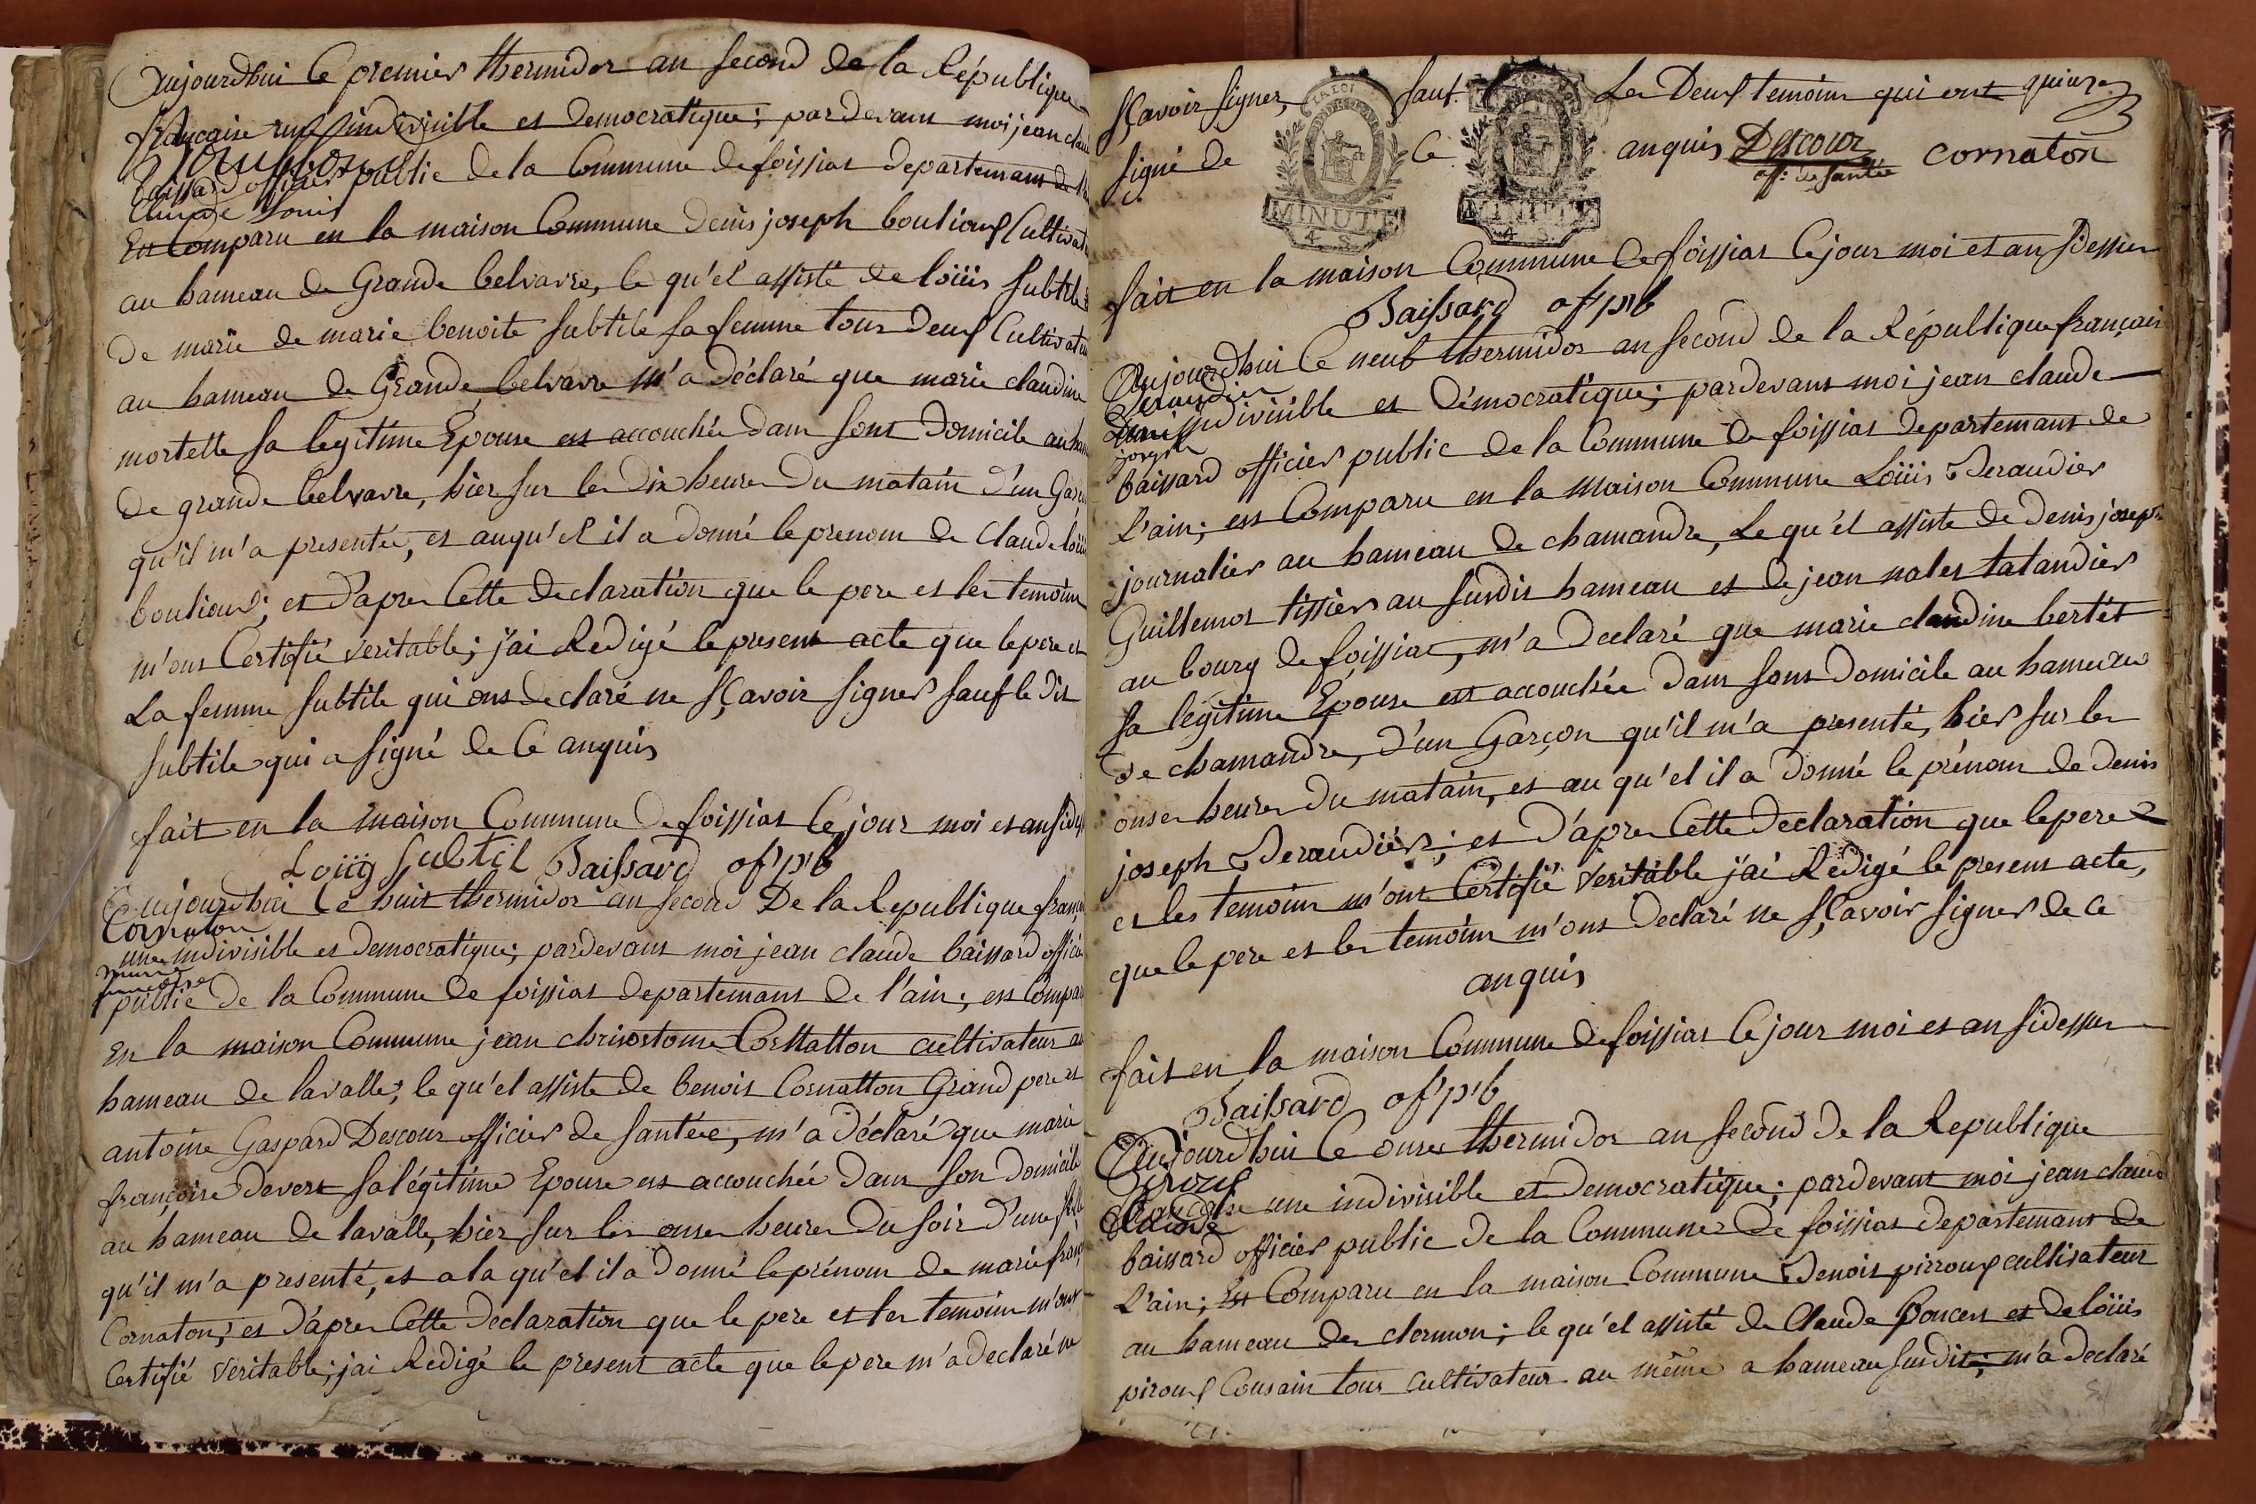 Aujourdhui le premier thermidor an second de la République
française une indivisible et democratique; pardevant moi jean clau
Bouillouf
baissard officier public de la Commune de foissiat departemant de
Claude Louis
Est Comparu en la maison Commune denis joseph bouliouf Cultivat
au hameau de Grande belvavre, le qu'el assisté de loüis subtile
de marie de marie benoite subtile sa femme tous deuf Cultivat
au hameau de Grande belvavre m'a déclaré que marie claudine
mortelle sa legitime Epouse est accouchée dans sont domicile au ham
de grande belvavre, hier sur les dix heures du matain d'un Garç
qu'il m'a presentée, et auqu'el il a donné le prenom de Claude loüi
boulioud; et d'apres Cette declaration que le pere et les temoins
m'ont Certifié veritable; j'ai Redigé le present acte que le pere et
La femme subtile qui ont declaré ne sçavoir signer sauf le dit
subtile qui a signé de Ce anquis
fait en la maison Commune de foissiat Ce jour moi et an sides
Loüis Subtil Baissard of p b
Aujourdhui Ce huit thermidor an second De la Republique franç
Cornaton
une indivisible et democratique; pardevant moi jean claude baissard offici
marie
françoise
public de la Commune de foissiat departemant de l'ain; est Compar
En la maison Commune jean chrisostome Cornatton cultivateur au
hameau de lavalle; le qu'el assiste de benoit Cornatton Grand pere et
antoine Gaspard Descour officier de santée, m'a déclaré que marie
françoise devert sa légitime Epouse est accouchée dans son domicile
au hameau de lavalle, hier sur les onse heures du soir d'une fille
qu'il m'a presenté, et a la qu'el il a donné le prénom de marie franç
Cornaton; et d'apres Cette declaration que le pere et les temoins m'ont
Certifié veritable; j'ai Redigé le present acte que le pere m'a declaré ne
sçavoir signer, sauf Les Deuf temoins qui ont
signé de Ce anquis Descour cornaton
off: de santée
LA LOI
MINUTE
4. S.
MINUTE
4. S.
fait en la maison Commune de foissiat Ce jour moi et an sidessus
Baissard of p b
Aujourdhui Ce neuf thermidor an second de la République français
Deraudier
une indivisible et démocratique; pardevant moi jean claude
denis
joseph
baissard officier public de la Commune de foissiat departemant de
L'ain; est Comparu en la maison Commune Loüis Deraudier
journalier au hameau de chamandre, Le qu'el assiste de denis joseph
Guillemot tissier au susdit hameau et de jean nales talandier
au bourg de foissiat, m'a declaré que marie claudine bertet
sa légitime Epouse est accouchée dans sont domicile au hameau
de chamandre, d'un Garçon qu'il m'a presenté, hier sur les
onse heures du matain, et au qu'el il a donné le prénom de denis
joseph Deraudier; et d'apres Cette declaration que le pere
et les temoins m'ont Certifié veritable j'ai Redigé le present acte,
que le pere et les temoins m'ont declaré ne sçavoir signer de ce
anquis
fait en la maison Commune de foissiat Ce jour moi et an sidessus
Baissard of p b
Aujourdhui Ce onse thermidor an second de la Republique
Pirouf
française une indivisible et democratique; pardevant moi jean claud
Claude
baissard officier public de la Commune de foissiat departemant de
L'ain; Est Comparu en la maison Commune Denois pirrouf cultivateur
au hameau de clermon; le qu'el assisté de Claude Poncet et de loüis
pirouf Cousain tous cultivateur au même a hameau susdit; m'a declaré